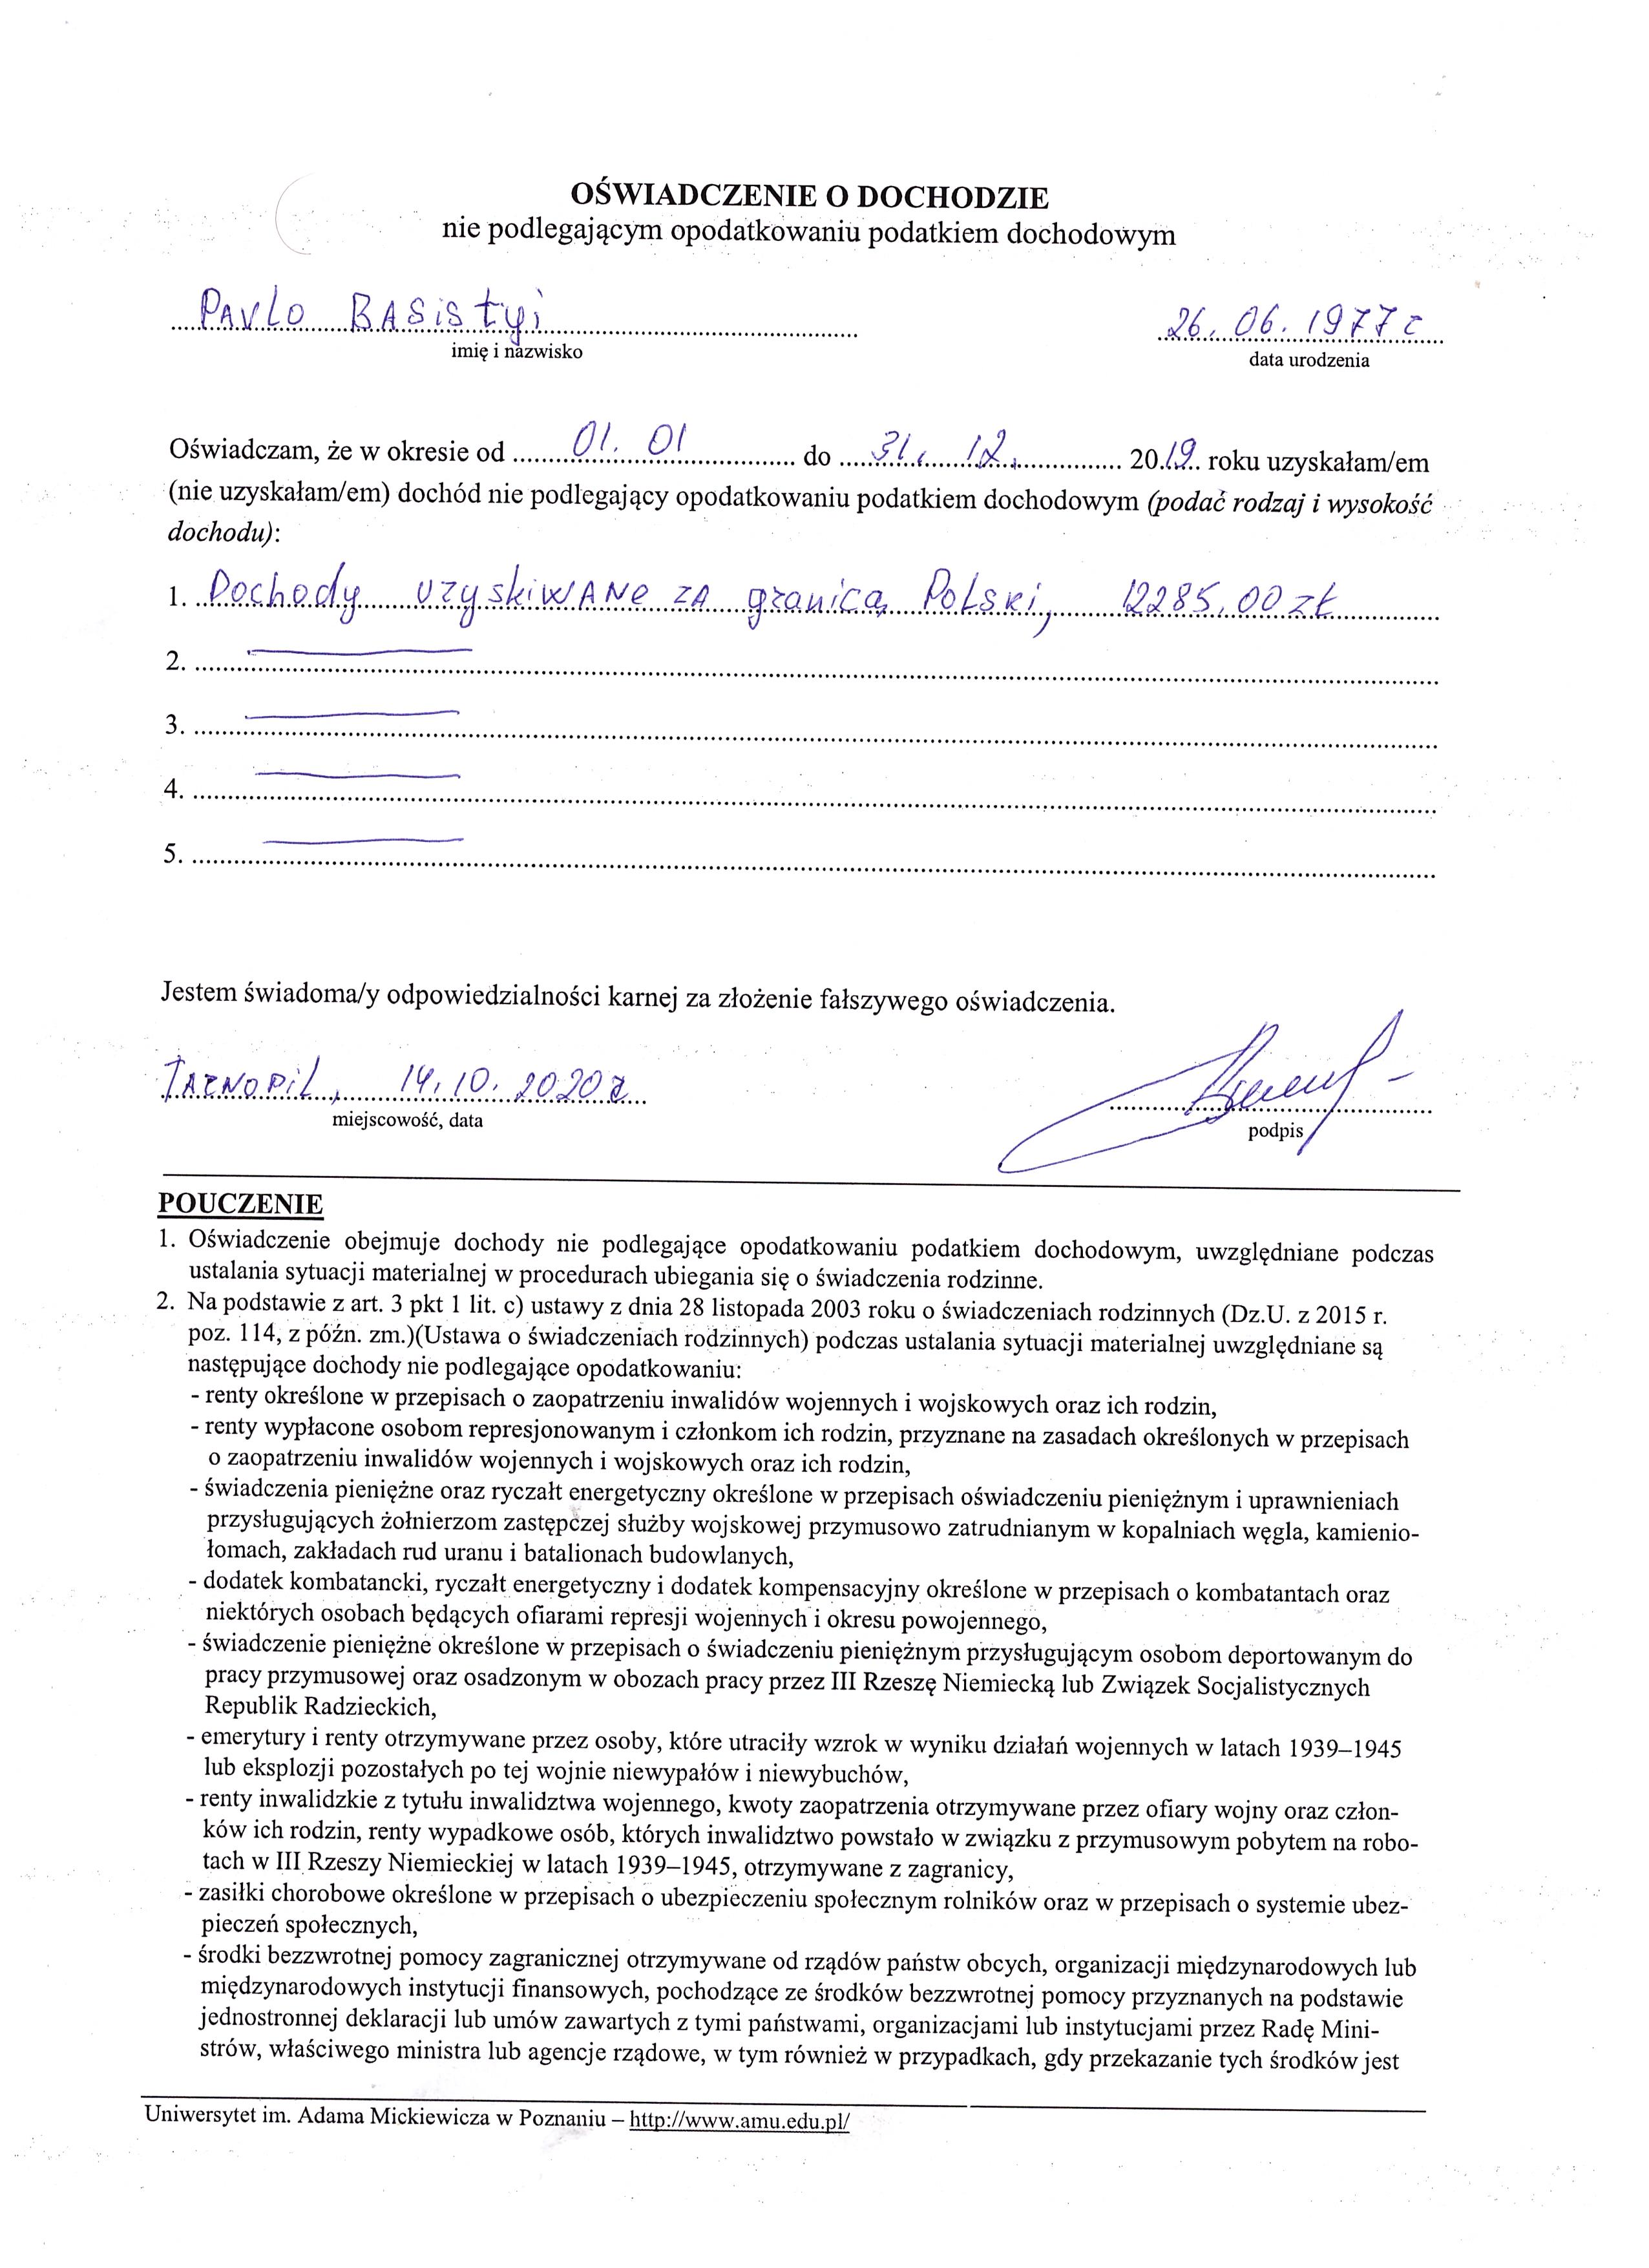 OŚWIADCZENIE O DOCHODZIE
nie podlegającym opodatkowaniu podatkiem dochodowym
PAVLO BASistyi 26.06.1977 r
imię i nazwisko data urodzenia
Oświadczam, że w okresie od 01.01 do 31.12. 2019. roku uzyskałam/em
(nie uzyskałam/em) dochód nie podlegający opodatkowaniu podatkiem dochodowym (podać rodzaj i wysokość
dochodu):
1. Dochody uzyskiwane za granicą Polski, 12285,00 zł
2.
3.
4.
5.
Jestem świadoma/y odpowiedzialności karnej za złożenie fałszywego oświadczenia.
TARNOPIL, 14.10.2020 r.
miejscowość, data podpis
POUCZENIE
1. Oświadczenie obejmuje dochody nie podlegające opodatkowaniu podatkiem dochodowym, uwzględniane podczas
ustalania sytuacji materialnej w procedurach ubiegania się o świadczenia rodzinne.
2. Na podstawie z art. 3 pkt 1 lit. c) ustawy z dnia 28 listopada 2003 roku o świadczeniach rodzinnych (Dz.U. z 2015 r.
poz. 114, z późn. zm.)(Ustawa o świadczeniach rodzinnych) podczas ustalania sytuacji materialnej uwzględniane są
następujące dochody nie podlegające opodatkowaniu:
- renty określone w przepisach o zaopatrzeniu inwalidów wojennych i wojskowych oraz ich rodzin,
- renty wypłacone osobom represjonowanym i członkom ich rodzin, przyznane na zasadach określonych w przepisach
o zaopatrzeniu inwalidów wojennych i wojskowych oraz ich rodzin,
- świadczenia pieniężne oraz ryczałt energetyczny określone w przepisach oświadczeniu pieniężnym i uprawnieniach
przysługujących żołnierzom zastępczej służby wojskowej przymusowo zatrudnianym w kopalniach węgla, kamienio-
łomach, zakładach rud uranu i batalionach budowlanych,
- dodatek kombatancki, ryczałt energetyczny i dodatek kompensacyjny określone w przepisach o kombatantach oraz
niektórych osobach będących ofiarami represji wojennych i okresu powojennego,
- świadczenie pieniężne określone w przepisach o świadczeniu pieniężnym przysługującym osobom deportowanym do
pracy przymusowej oraz osadzonym w obozach pracy przez III Rzeszę Niemiecką lub Związek Socjalistycznych
Republik Radzieckich,
- emerytury i renty otrzymywane przez osoby, które utraciły wzrok w wyniku działań wojennych w latach 1939–1945
lub eksplozji pozostałych po tej wojnie niewypałów i niewybuchów,
- renty inwalidzkie z tytułu inwalidztwa wojennego, kwoty zaopatrzenia otrzymywane przez ofiary wojny oraz człon-
ków ich rodzin, renty wypadkowe osób, których inwalidztwo powstało w związku z przymusowym pobytem na robo-
tach w III Rzeszy Niemieckiej w latach 1939–1945, otrzymywane z zagranicy,
- zasiłki chorobowe określone w przepisach o ubezpieczeniu społecznym rolników oraz w przepisach o systemie ubez-
pieczeń społecznych,
- środki bezzwrotnej pomocy zagranicznej otrzymywane od rządów państw obcych, organizacji międzynarodowych lub
międzynarodowych instytucji finansowych, pochodzące ze środków bezzwrotnej pomocy przyznanych na podstawie
jednostronnej deklaracji lub umów zawartych z tymi państwami, organizacjami lub instytucjami przez Radę Mini-
strów, właściwego ministra lub agencje rządowe, w tym również w przypadkach, gdy przekazanie tych środków jest
Uniwersytet im. Adama Mickiewicza w Poznaniu – http://www.amu.edu.pl/